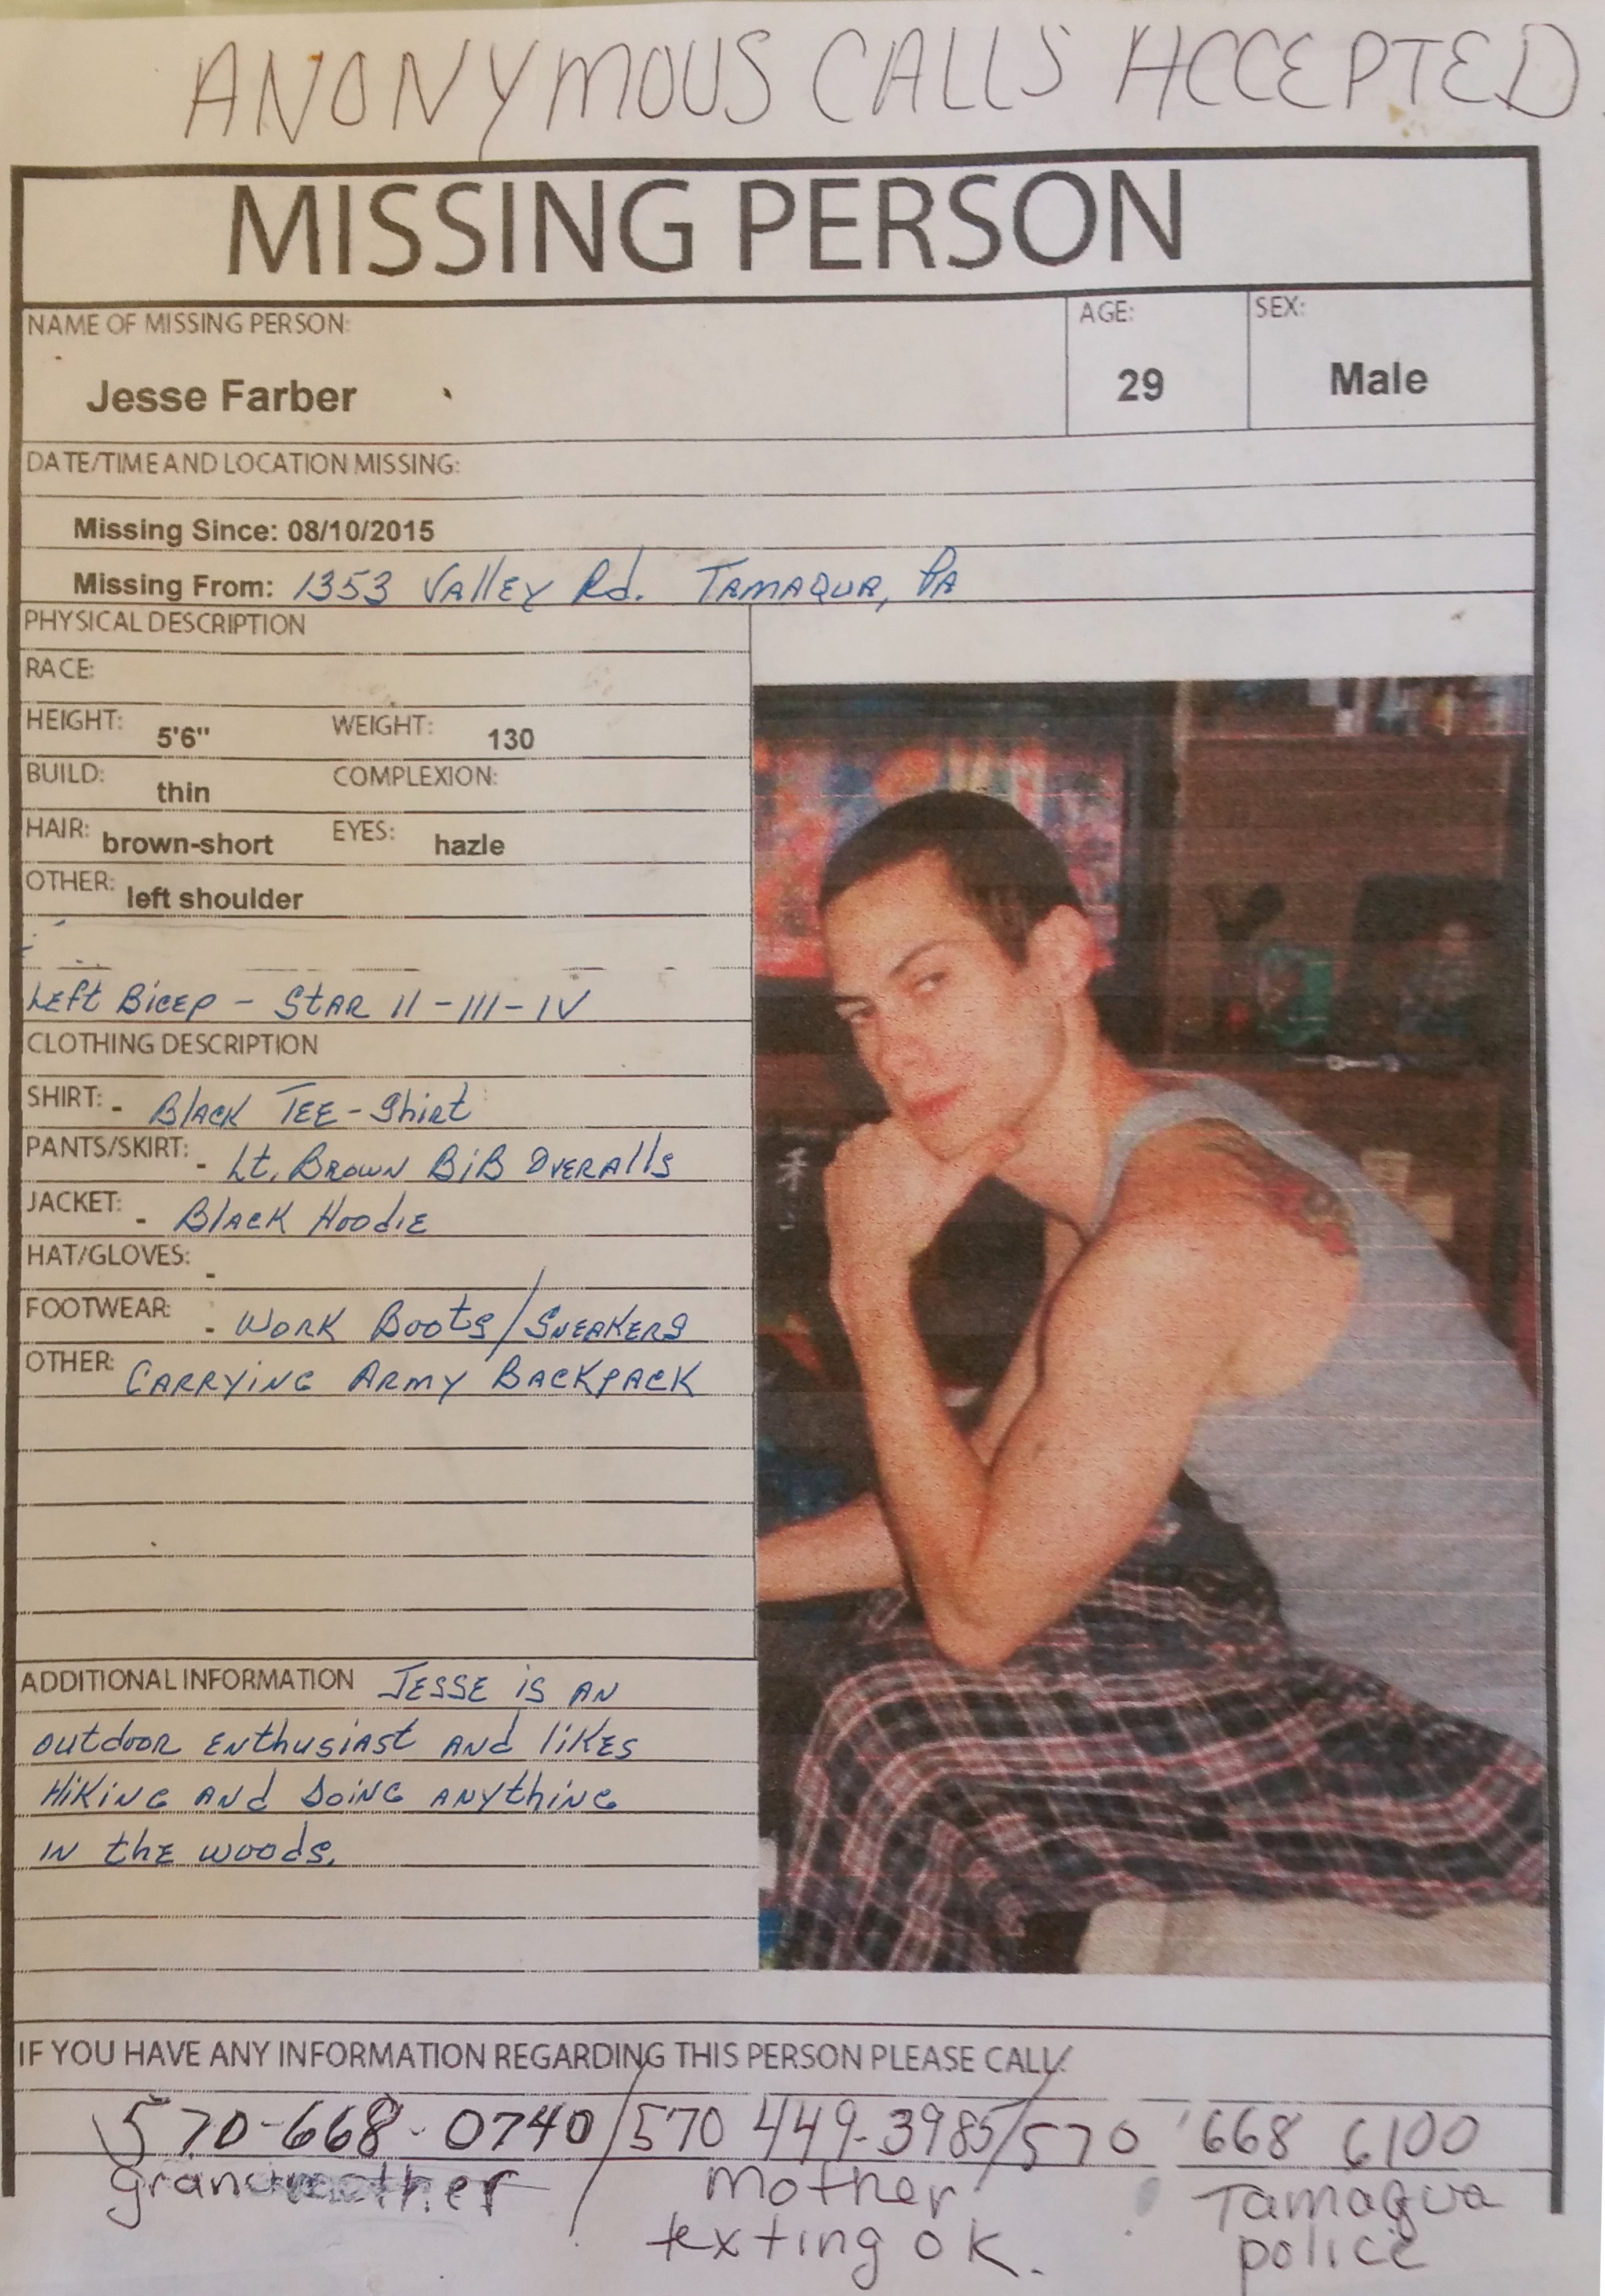 ANONYMOUS CALLS ACCEPTED
MISSING PERSON
NAME OF MISSING PERSON:
Jesse Farber
AGE:
29
SEX:
Male
DATE/TIME AND LOCATION MISSING:
Missing Since: 08/10/2015
Missing From: 1353 Valley Rd. Tamaqua, PA
PHYSICAL DESCRIPTION
RACE:
HEIGHT: 5'6" WEIGHT: 130
BUILD: thin COMPLEXION:
HAIR: brown-short EYES: hazle
OTHER: left shoulder
Left Bicep - Star II-III-IV
CLOTHING DESCRIPTION
SHIRT: - Black Tee-Shirt
PANTS/SKIRT: - Lt. Brown Bib Overalls
JACKET: - Black Hoodie
HAT/GLOVES: -
FOOTWEAR: - Work Boots/Sneakers
OTHER: Carrying Army Backpack
ADDITIONAL INFORMATION Jesse is an
outdoor enthusiast and likes
Hiking and Doing anything
in the woods.
IF YOU HAVE ANY INFORMATION REGARDING THIS PERSON PLEASE CALL:
570-668-0740/570 449-3985/570 668 6100
grandmother / mother Tamaqua
texting ok. police